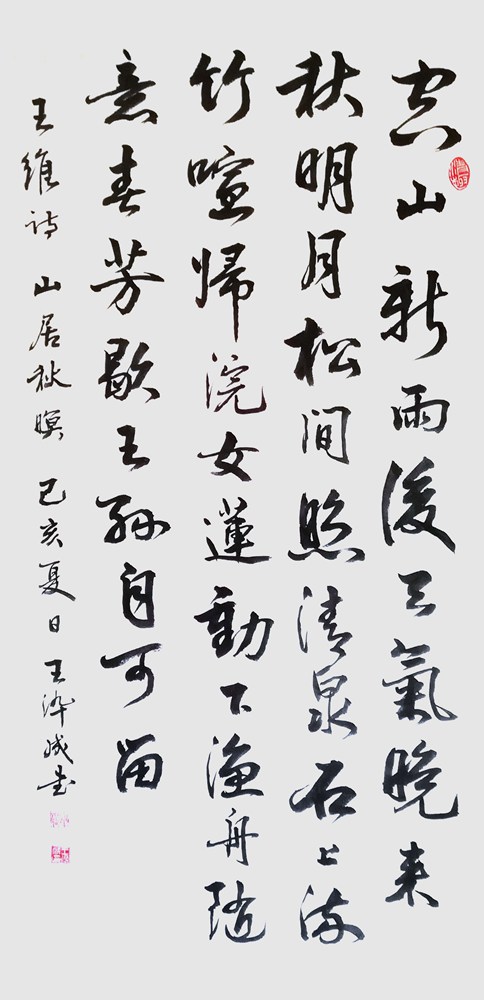 空山新雨後天氣晚来
秋明月松間照清泉石上流
竹喧歸浣女蓮動下渔舟随
意春芳歇王孫自可留
王維诗 山居秋暝 己亥夏日 王 成书